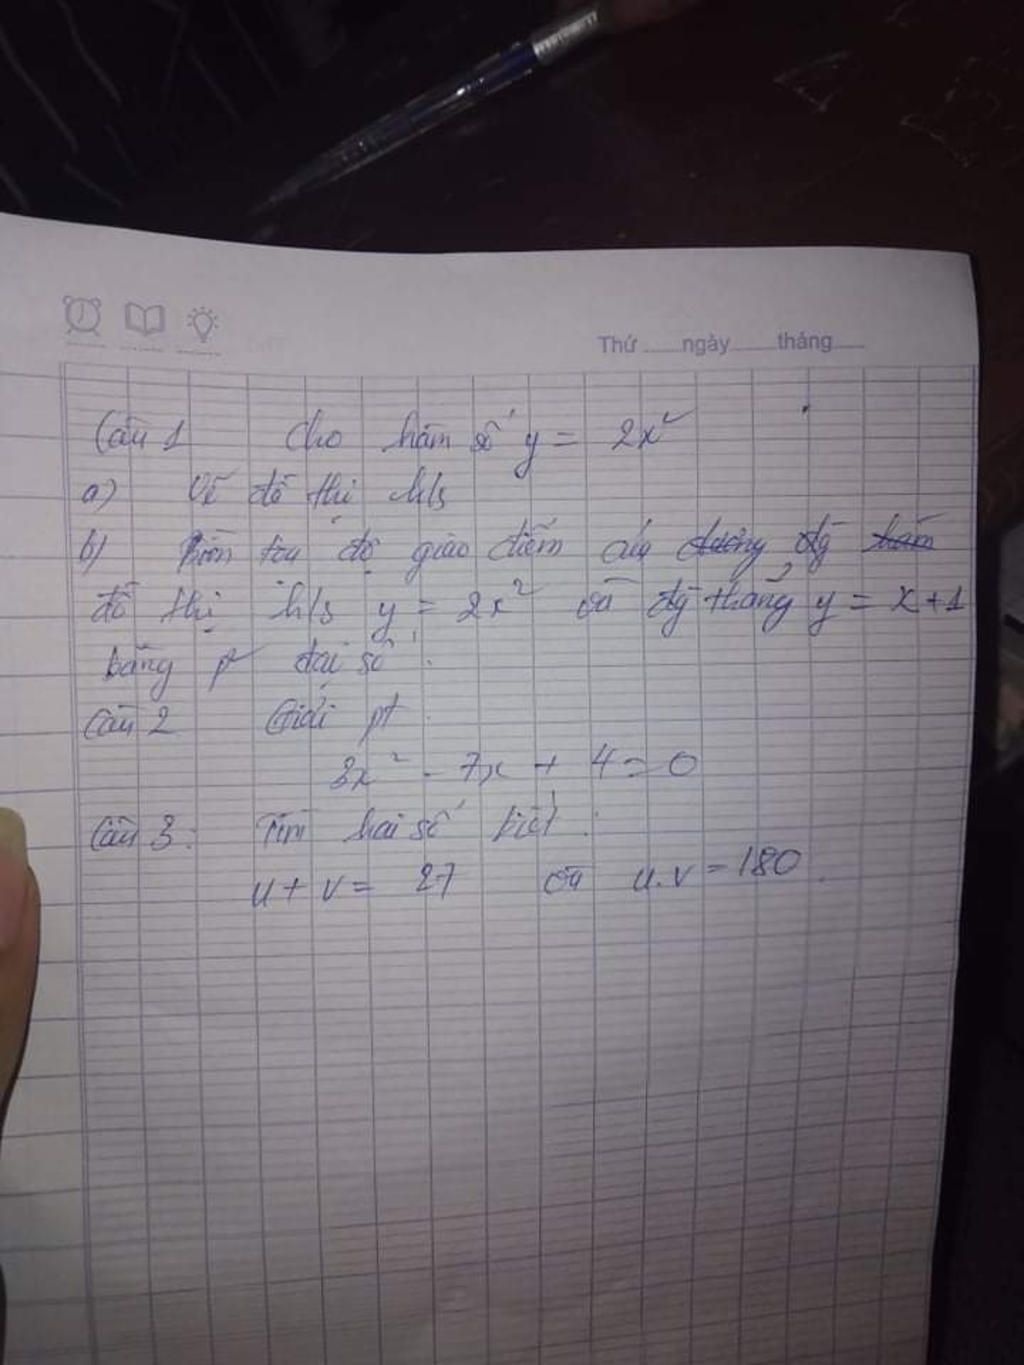 Thứ ngày tháng
Câu 1 Cho hàm số y = 2x²
a) Vẽ đồ thị h/s
b) Tìm toạ độ giao điểm của đường đg hàm
đồ thị h/s y = 2x² và đg thẳng y = x + 1
bằng p² đại số.
Câu 2 Giải pt
3x² - 7x + 4 = 0
Câu 3: Tìm hai số biết:
u + v = 27 và u.v = 180.